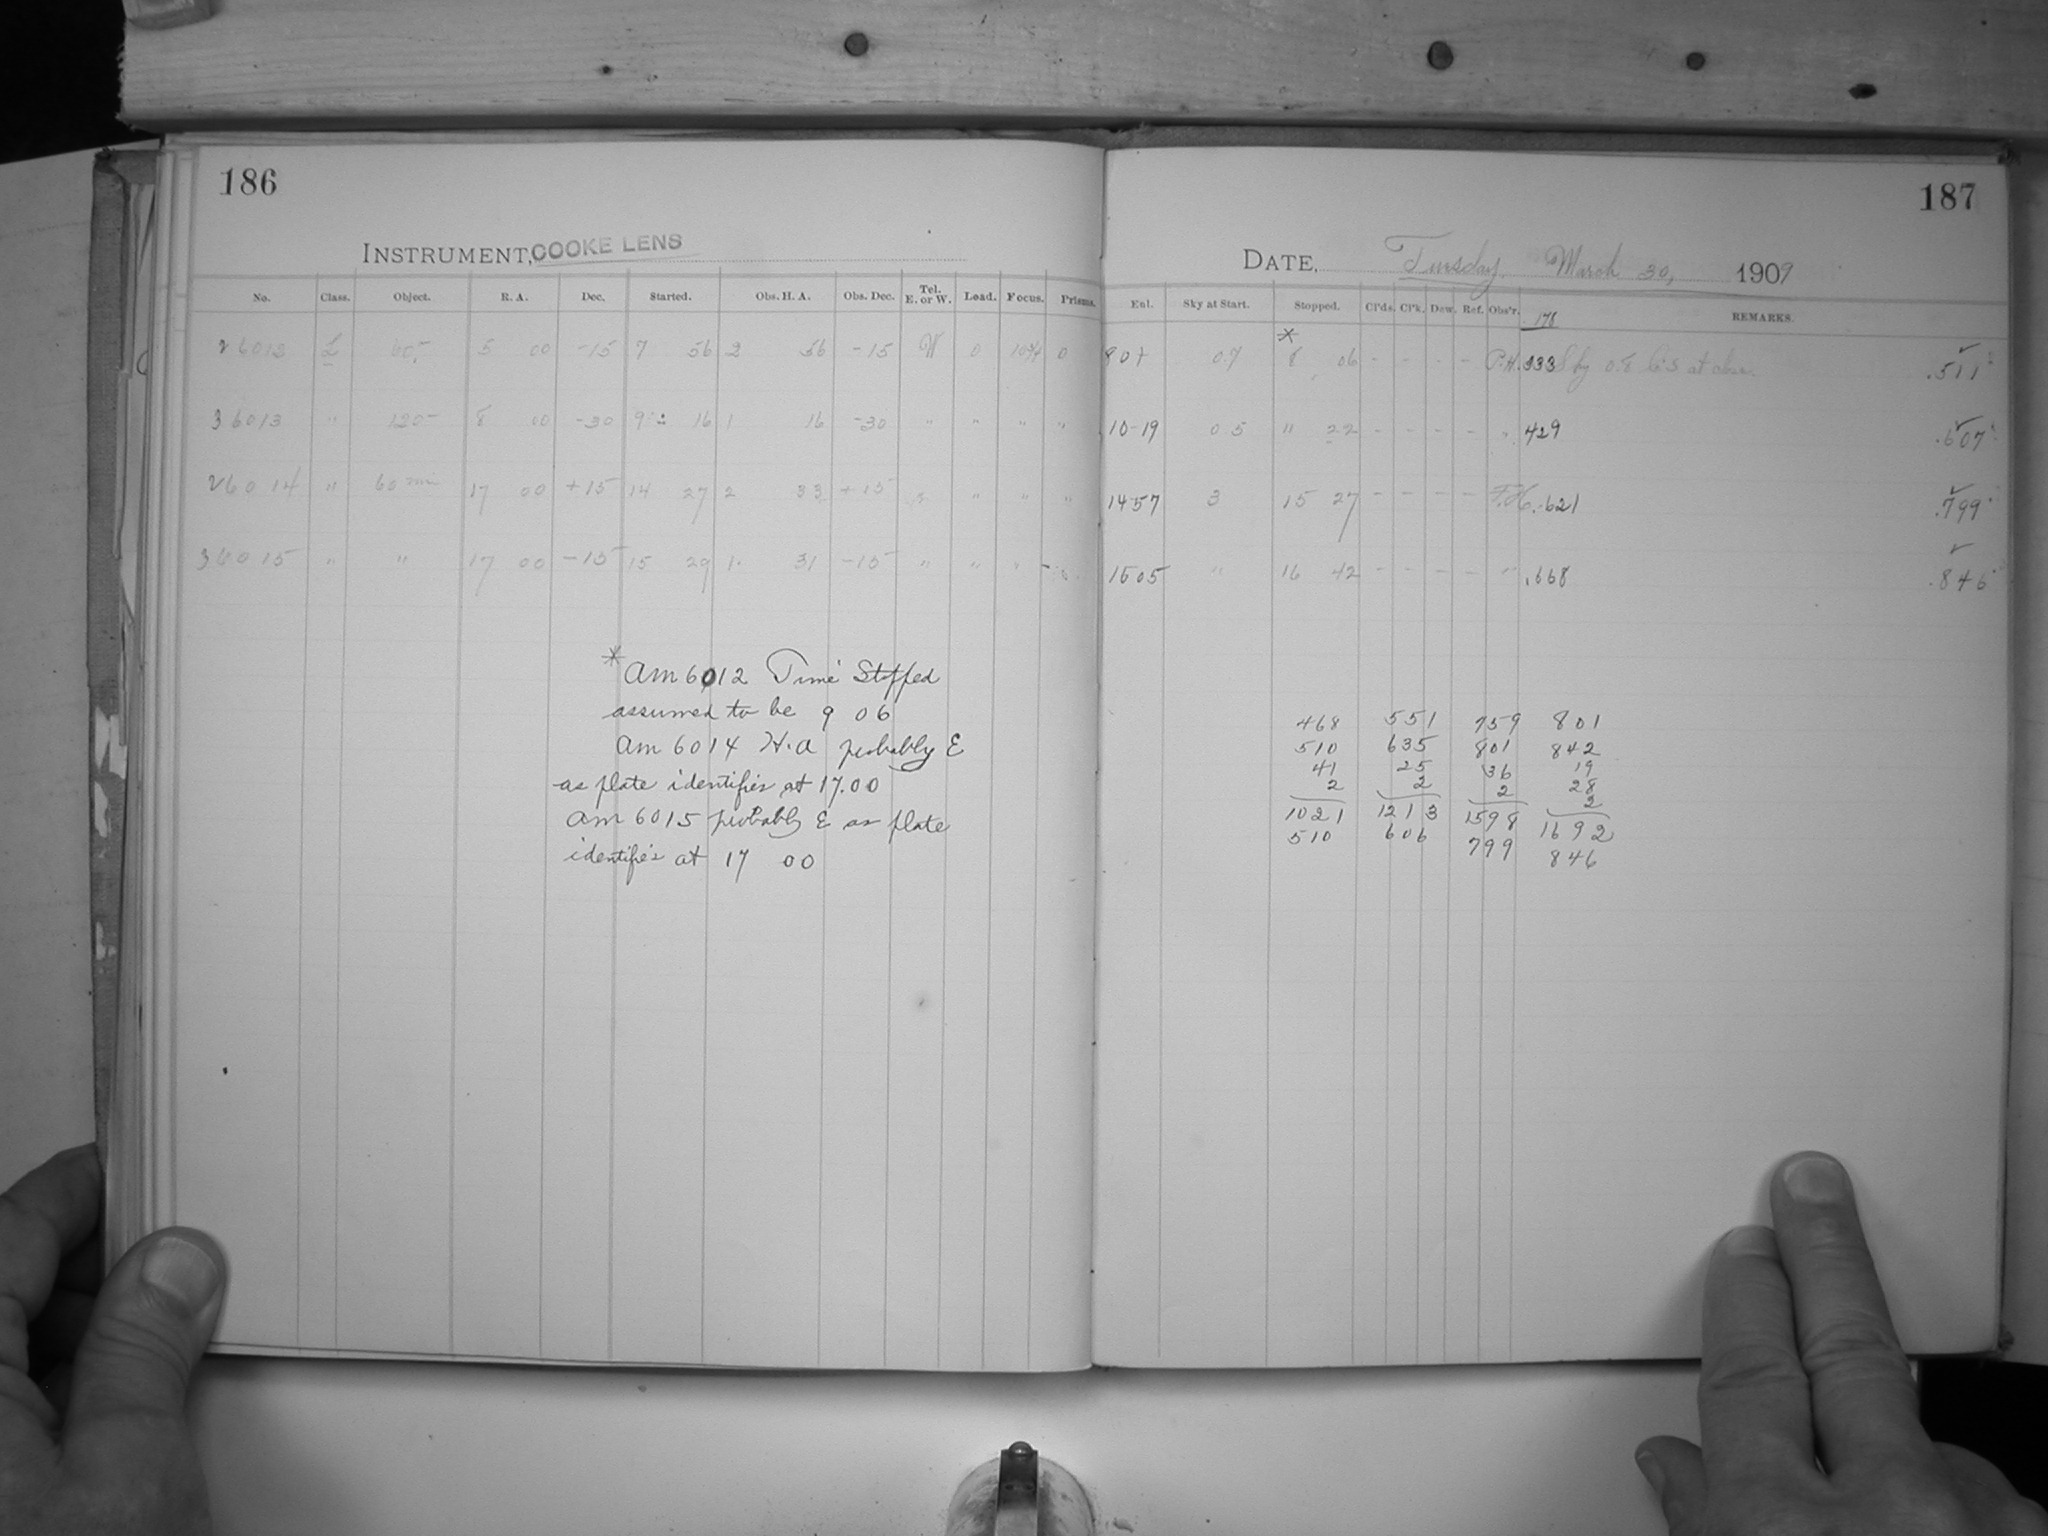 186
INSTRUMENT, COOKE LENS
No. Class. Object. R. A. Dec. Started. Obs. H. A. Obs. Dec. Tel. E. or W. Load. Focus. Prisms.
26012 L 5 00 -15 7 56 2 56 -15 W 0 0
36013 " 120- 8 00 -30 9 16 1 16 -30 " " " "
26014 " 60 min 17 00 +15 14 27 2 33 +15 " " " "
36015 " " 17 00 -15 15 29 1 31 -15 " " "
* Am 6012 Time Stopped
assumed to be 9 06
Am 6014 H.A probably E
as plate identifies at 17.00
Am 6015 probably E as plate
identifies at 17 00
187
DATE, Tuesday, March 30, 1909
Ent. Sky at Start. Stopped. Cl'ds. Cl'k. Dew. Ref. Obs'r. 178 REMARKS.
*
807 0.7 8 06 - - - - P.H. 333 Sky 0.8 at close. .511
10-19 0.5 " 22 - - - - " 429 .607
1457 3 15 27 - - - - F.H. .621 .799
1605 " 16 42 - - - - " .668 .846
468 551 759 801
510 635 801 842
41 25 36 19
2 2 2 28
2
1021 1213 1598 1692
510 606 799 846